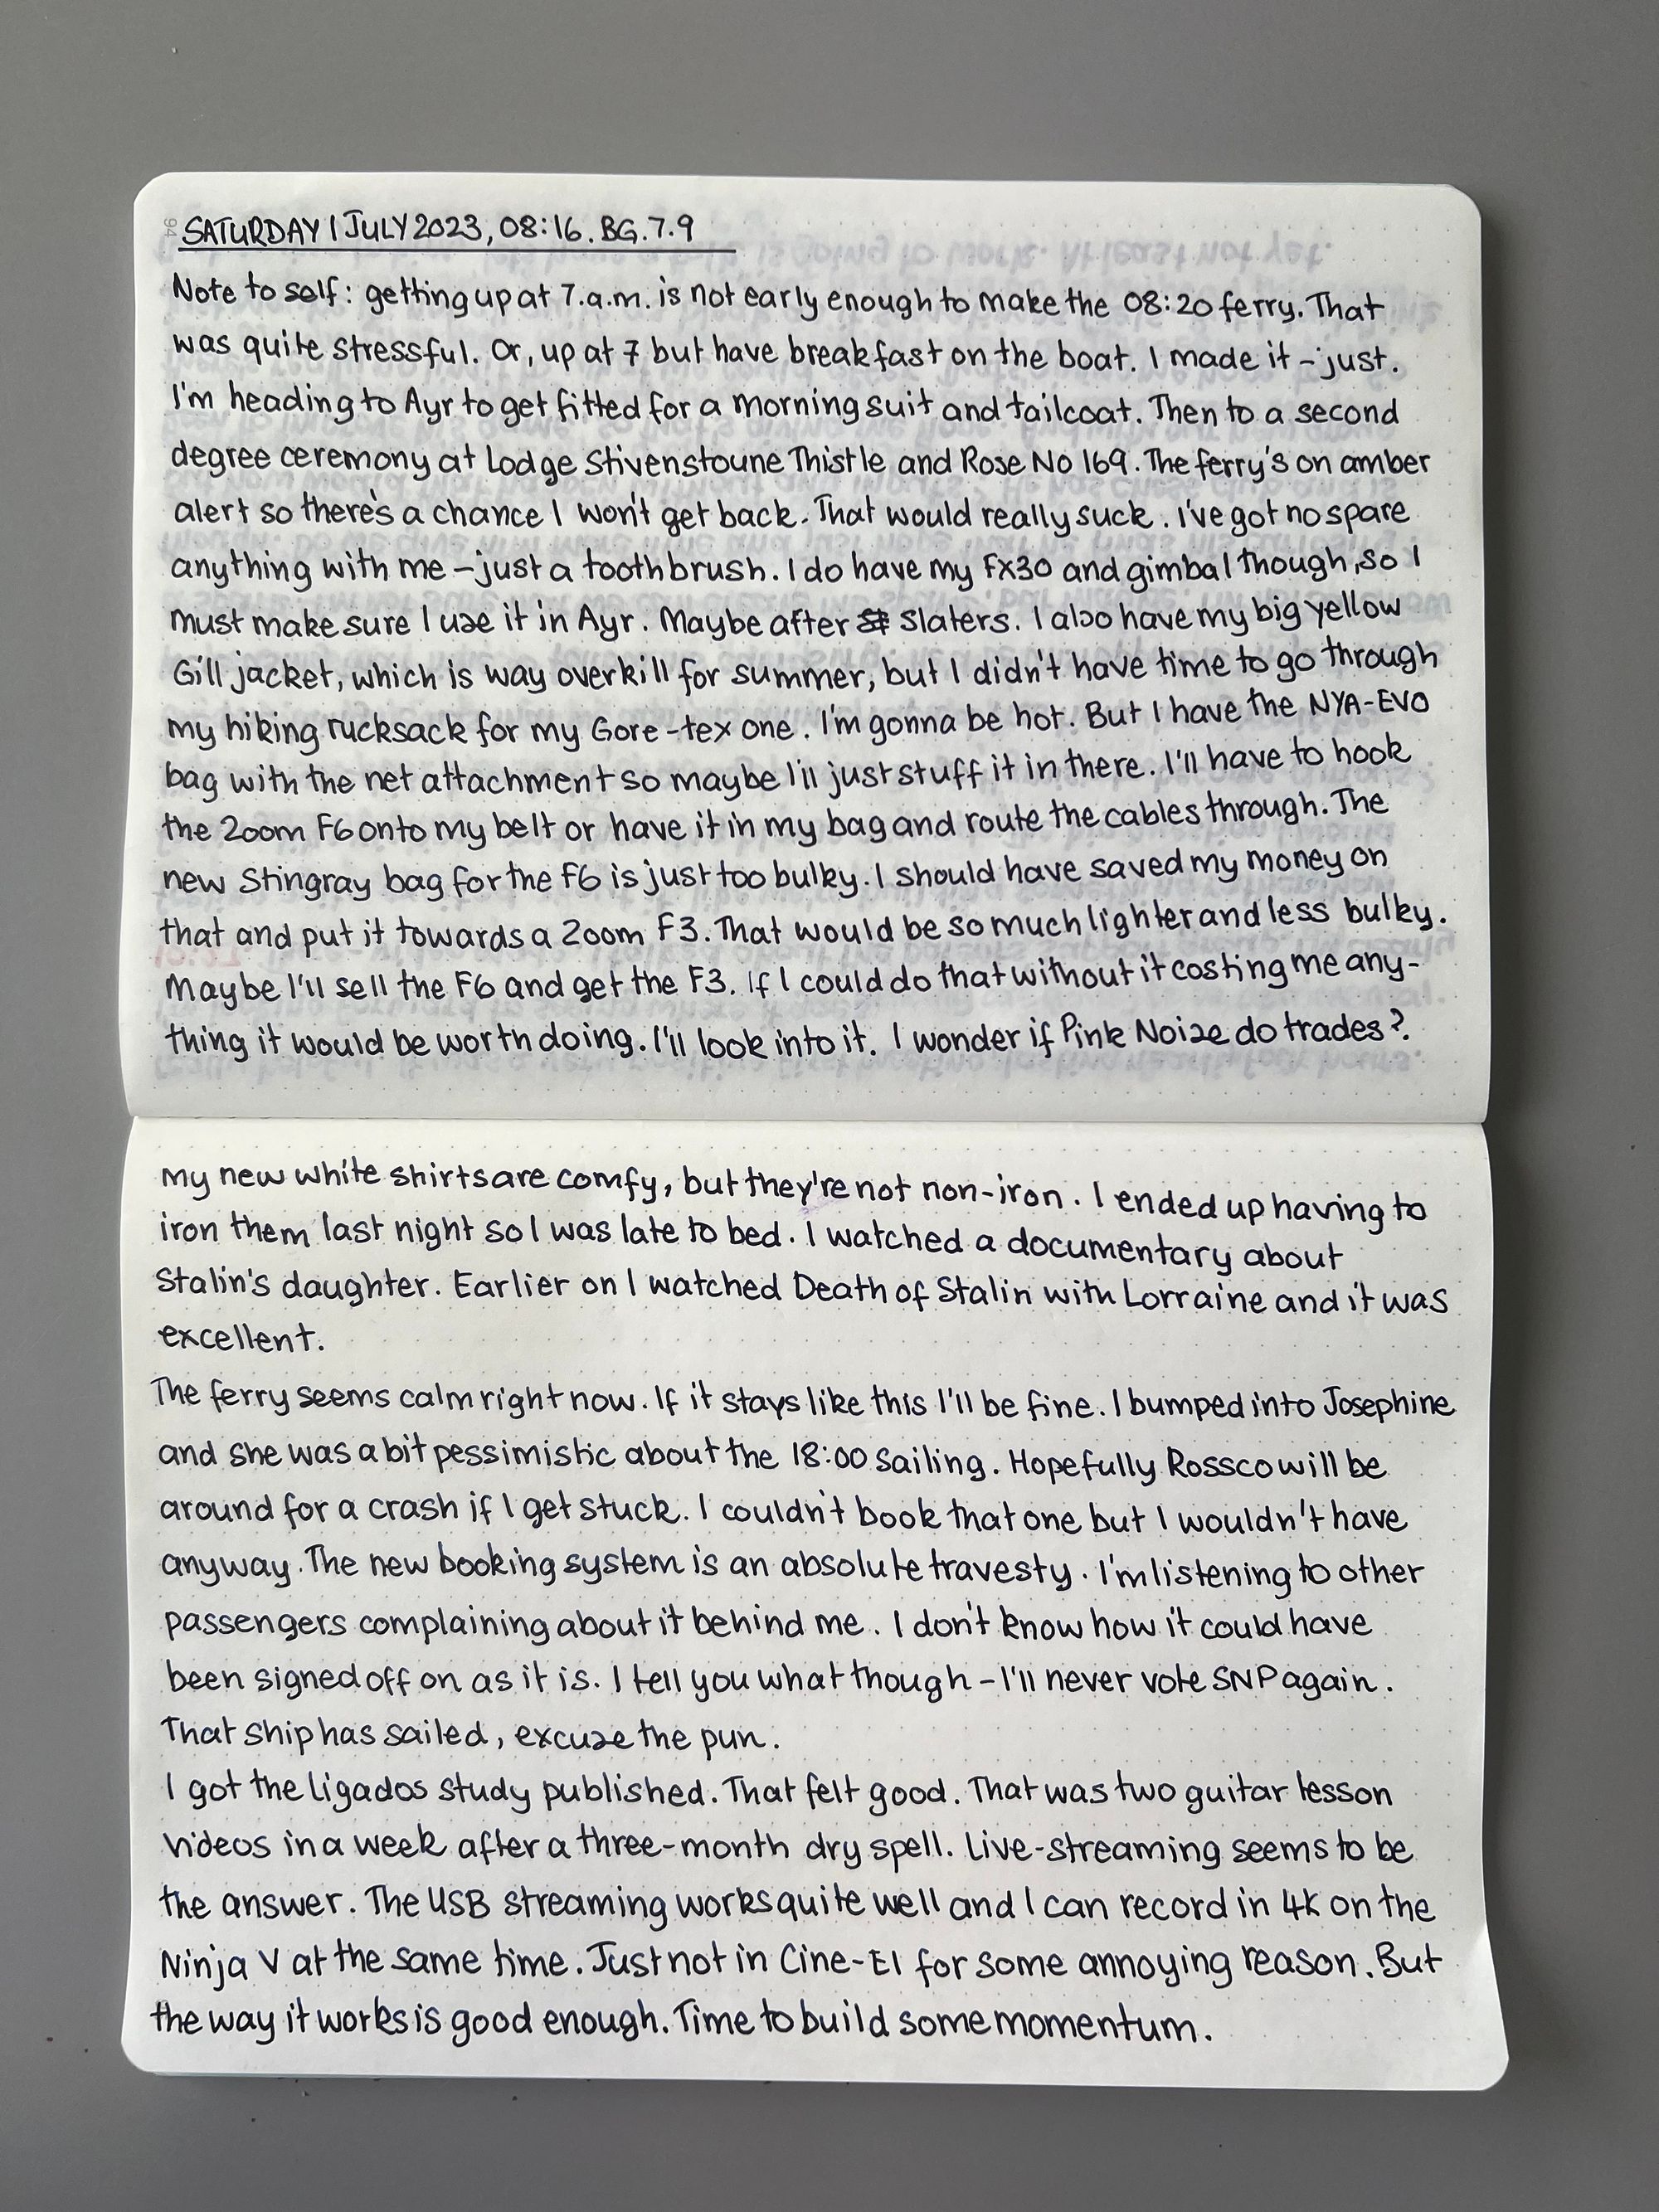 94
SATURDAY 1 JULY 2023, 08:16. BG. 7.9
Note to self: getting up at 7.a.m. is not early enough to make the 08:20 ferry. That
was quite stressful. Or, up at 7 but have breakfast on the boat. I made it – just.
I'm heading to Ayr to get fitted for a morning suit and tailcoat. Then to a second
degree ceremony at Lodge Stivenstoune Thistle and Rose No 169. The ferry's on amber
alert so there's a chance I won't get back. That would really suck. I've got no spare
anything with me – just a toothbrush. I do have my FX30 and gimbal though, so I
must make sure I use it in Ayr. Maybe after Slaters. I also have my big yellow
Gill jacket, which is way overkill for summer, but I didn't have time to go through
my hiking rucksack for my Gore-tex one. I'm gonna be hot. But I have the NYA-EVO
bag with the net attachment so maybe I'll just stuff it in there. I'll have to hook
the Zoom F6 onto my belt or have it in my bag and route the cables through. The
new Stingray bag for the F6 is just too bulky. I should have saved my money on
that and put it towards a Zoom F3. That would be so much lighter and less bulky.
Maybe I'll sell the F6 and get the F3. If I could do that without it costing me any-
thing it would be worth doing. I'll look into it. I wonder if Pink Noise do trades?
My new white shirts are comfy, but they're not non-iron. I ended up having to
iron them last night so I was late to bed. I watched a documentary about
Stalin's daughter. Earlier on I watched Death of Stalin with Lorraine and it was
excellent.
The ferry seems calm right now. If it stays like this I'll be fine. I bumped into Josephine
and she was a bit pessimistic about the 18:00 sailing. Hopefully Rossco will be
around for a crash if I get stuck. I couldn't book that one but I wouldn't have
anyway. The new booking system is an absolute travesty. I'm listening to other
passengers complaining about it behind me. I don't know how it could have
been signed off on as it is. I tell you what though – I'll never vote SNP again.
That ship has sailed, excuse the pun.
I got the ligados study published. That felt good. That was two guitar lesson
videos in a week after a three-month dry spell. Live-streaming seems to be
the answer. The USB streaming works quite well and I can record in 4K on the
Ninja V at the same time. Just not in Cine-EI for some annoying reason. But
the way it works is good enough. Time to build some momentum.